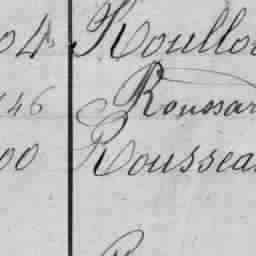 04 Roullo
46 Roussar
00 Roussea